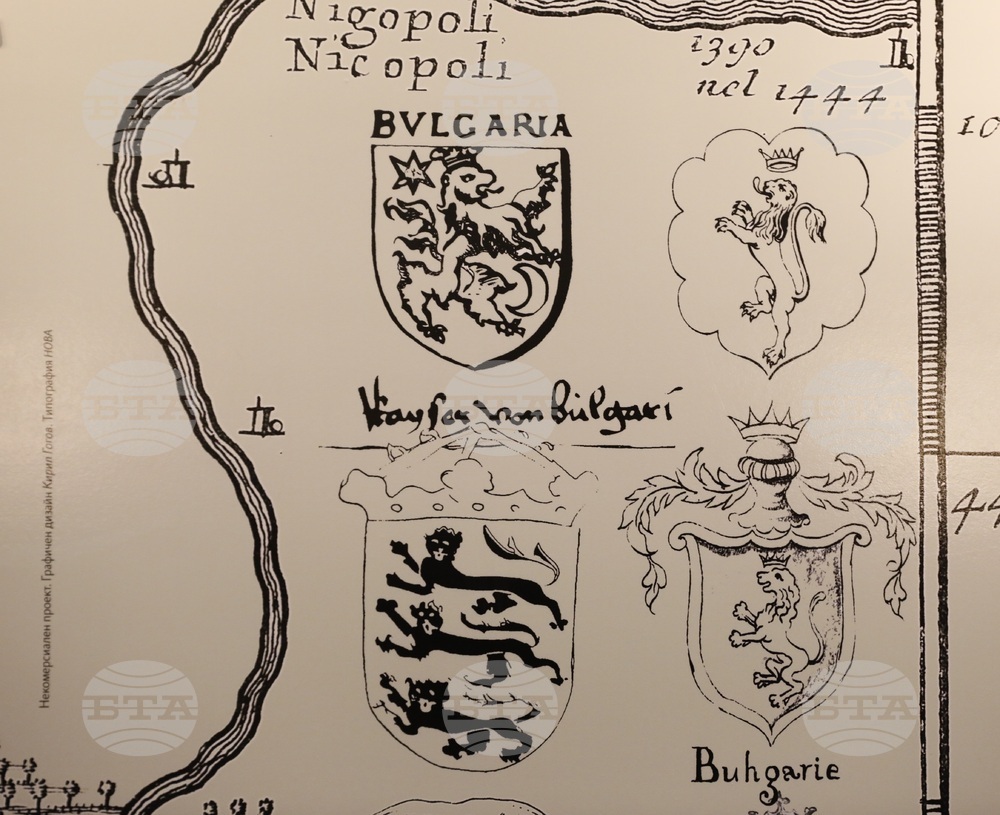 Nigopoli
Nicopoli
1390
nel 1444
10
BVLGARIA
Kayser von Bulgari
44
Buhgarie
Некомерсиален проект. Графичен дизайн Кирил Гогов. Типография НОВА
БТА
БТА
БТА
БТА
БТА
БТА
БТА
БТА
БТА